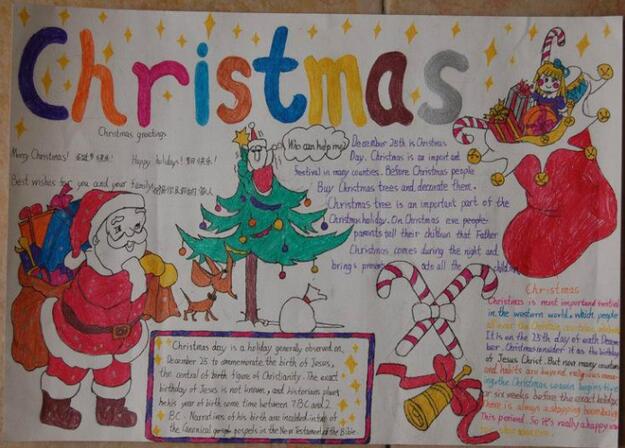 Christmas
Christmas greetings
Merry Christmas! 圣诞节快乐!
Happy holidays! 节日快乐!
Best wishes for you and your family
Who can help me?
December 25th is Christmas
Day. Christmas is an important
festival in many countries. Before Christmas people
Buy Christmas trees and decorate them.
Christmas tree is an important part of the
Christmas holiday. On Christmas eve people
parents tell their children that Father
Christmas comes during the night and
brings all the children
Christmas
Christmas is most important festival
in the western world. which people
all over the Christian
It is on the 25th day of each Decem
ber. Christmas consider it as the birthday
of Jesus Christ. But now many customs
and habits are beyond religious
the Christmas season begins five
or six weeks before the exact holiday
There is always a shopping boom
This period. So it's really a happy
"Christmas day is a holiday generally observed on,
December 25 to commemorate the birth of Jesus,
the central of birth figure of Christianity. The exact
birthday of Jesus is not known, and historians place
his year of birth some time between 7 BC and 2
BC. Narratives of his birth are included in
the Canonical gospels in the New Testament of the Bible.